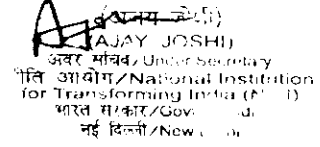 (अजय जोशी)
(AJAY JOSHI)
अवर सचिव/Under Secretary
नीति आयोग/National Institution
for Transforming India
भारत सरकार/Gov
नई दिल्ली/New